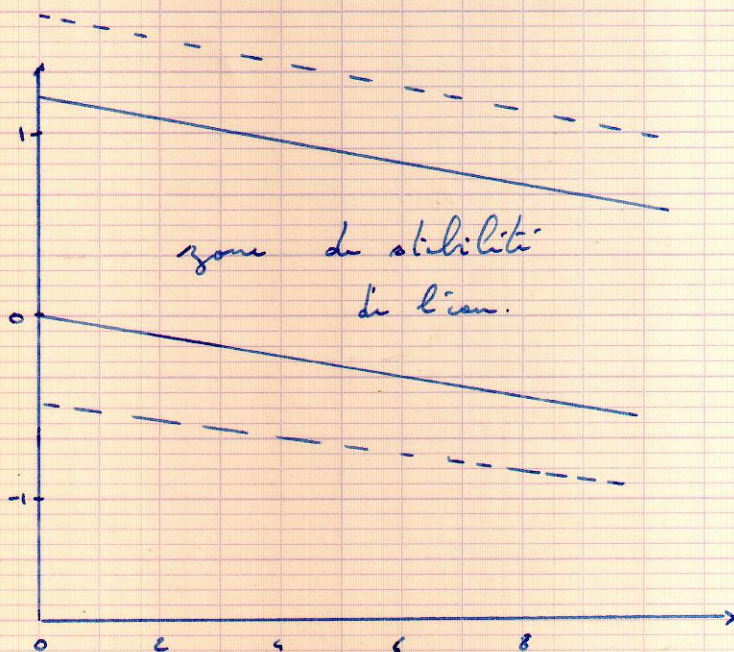 1
zone de stabilité
de l'eau.
0
-1
0 2 4 6 8